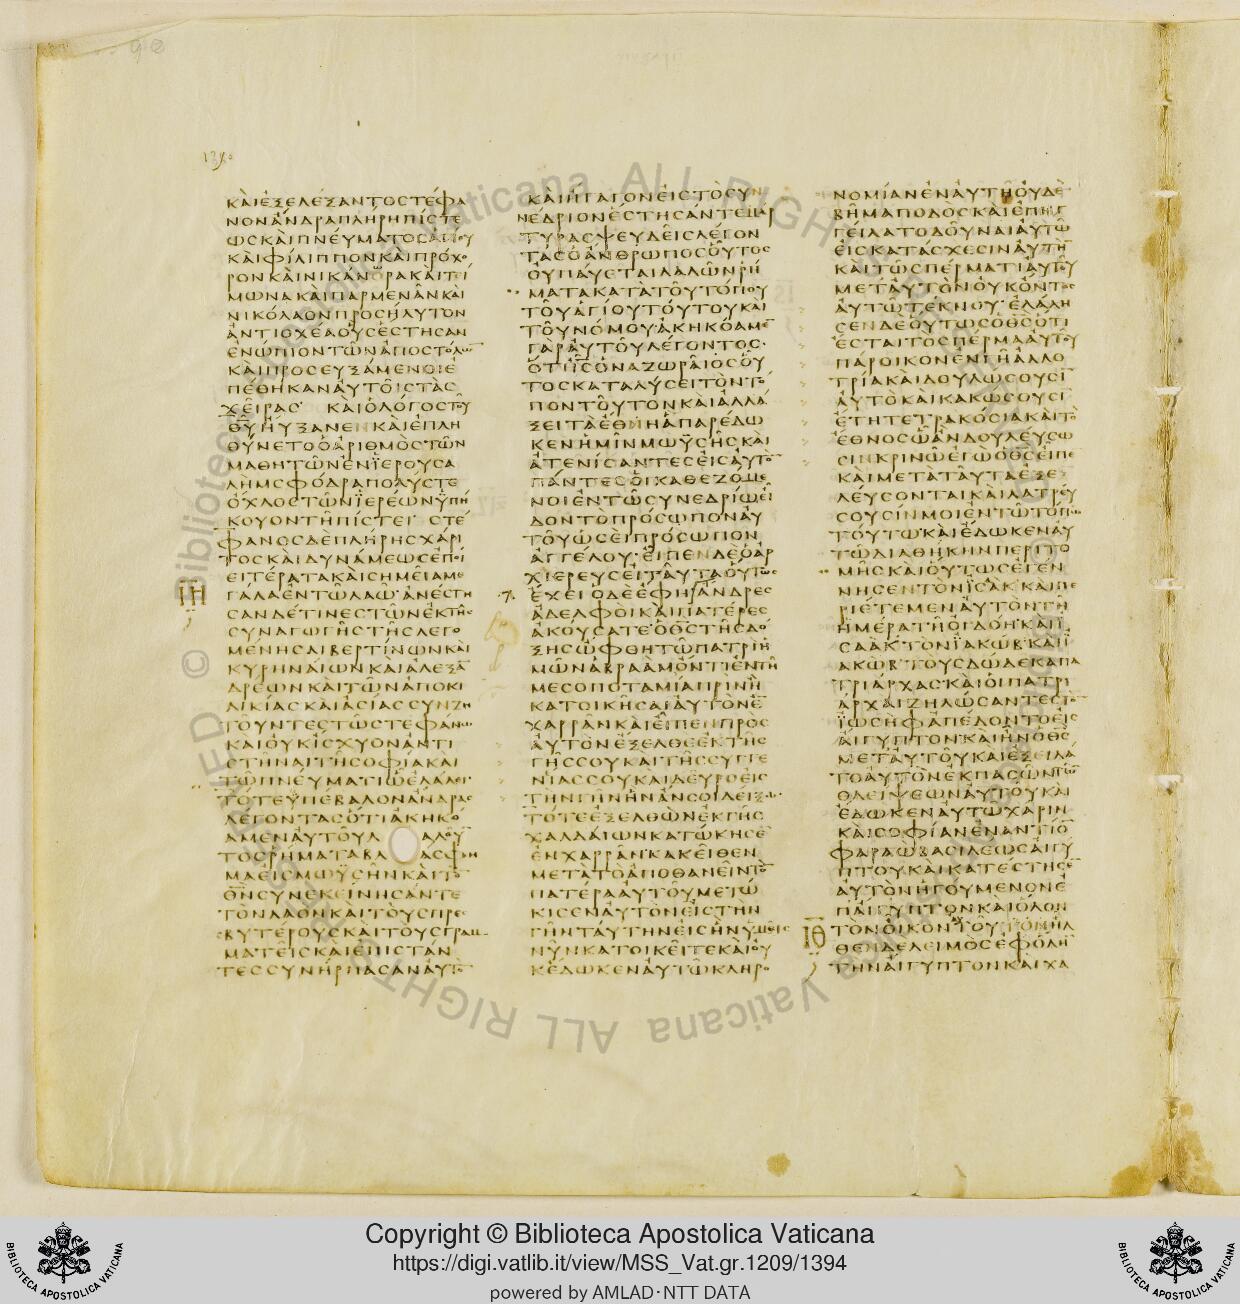 1394
ΚΑΙΕΞΕΛΕΞΑΝΤΟΣΤΕΦΑ
ΝΟΝΑΝΔΡΑΠΛΗΡΗΠΙΣΤΕ
ΩΣΚΑΙΠΝΕΥΜΑΤΟΣΑΓΙΟΥ
ΚΑΙΦΙΛΙΠΠΟΝΚΑΙΠΡΟΧΟ
ΡΟΝΚΑΙΝΙΚΑΝΟΡΑΚΑΙΤΕΙ
ΜΩΝΑΚΑΙΠΑΡΜΕΝΑΝΚΑΙ
ΝΙΚΟΛΑΟΝΠΡΟΣΗΛΥΤΟΝ
ΑΝΤΙΟΧΕΑΟΥΣΕΣΤΗΣΑΝ
ΕΝΩΠΙΟΝΤΩΝΑΠΟΣΤΟΛΩ̅
ΚΑΙΠΡΟΣΕΥΞΑΜΕΝΟΙΕ
ΠΕΘΗΚΑΝΑΥΤΟΙΣΤΑΣ
ΧΕΙΡΑΣ ΚΑΙΟΛΟΓΟΣΤΟΥ
ΘΥ̅ΗΥΞΑΝΕΝΚΑΙΕΠΛΗ
ΘΥΝΕΤΟΟΑΡΙΘΜΟΣΤΩΝ
ΜΑΘΗΤΩΝΕΝΪΕΡΟΥΣΑ
ΛΗΜΣΦΟΔΡΑΠΟΛΥΣΤΕ
ΟΧΛΟΣΤΩΝΪΕΡΕΩΝΥΠΗ
ΚΟΥΟΝΤΗΠΙΣΤΕΙ ΣΤΕ
ΦΑΝΟΣΔΕΠΛΗΡΗΣΧΑΡΙ
ΤΟΣΚΑΙΔΥΝΑΜΕΩΣΕΠΟΙ
ΕΙΤΕΡΑΤΑΚΑΙΣΗΜΕΙΑΜΕ
ΙΗ ΓΑΛΑΕΝΤΩΛΑΩ ΑΝΕΣΤΗ
ΣΑΝΔΕΤΙΝΕΣΤΩΝΕΚΤΗΣ
ΣΥΝΑΓΩΓΗΣΤΗΣΛΕΓΟ
ΜΕΝΗΣΛΙΒΕΡΤΙΝΩΝΚΑΙ
ΚΥΡΗΝΑΙΩΝΚΑΙΑΛΕΞΑ̅
ΔΡΕΩΝΚΑΙΤΩΝΑΠΟΚΙ
ΛΙΚΙΑΣΚΑΙΑΣΙΑΣΣΥΝΖΗ
ΤΟΥΝΤΕΣΤΩΣΤΕΦΑΝΩ
ΚΑΙΟΥΚΙΣΧΥΟΝΑΝΤΙ
ΣΤΗΝΑΙΤΗΣΟΦΙΑΚΑΙ
ΤΩΠΝΕΥΜΑΤΙΩΕΛΑΛΕΙ
ΤΟΤΕΫΠΕΒΑΛΟΝΑΝΔΡΑΣ
ΛΕΓΟΝΤΑΣΟΤΙΑΚΗΚΟ
ΑΜΕΝΑΥΤΟΥΛ ΑΛΟΥ̅
ΤΟΣΡΗΜΑΤΑΒΛ ΑΣΦΗ
ΜΑΕΙΣΜΩΫΣΗΝΚΑΙΤΟ̅
ΘΝ̅ΣΥΝΕΚΕΙΝΗΣΑΝΤΕ
ΤΟΝΛΑΟΝΚΑΙΤΟΥΣΠΡΕ
ΣΒΥΤΕΡΟΥΣΚΑΙΤΟΥΣΓΡΑΜ
ΜΑΤΕΙΣΚΑΙΕΠΙΣΤΑΝ
ΤΕΣΣΥΝΗΡΠΑΣΑΝΑΥΤΟ̅
ΚΑΙΗΓΑΓΟΝΕΙΣΤΟΣΥΝ
ΝΕΔΡΙΟΝΕΣΤΗΣΑΝΤΕΜΑΡ
ΤΥΡΑΣΨΕΥΔΕΙΣΛΕΓΟΝ
ΤΑΣΟΑΝΘΡΩΠΟΣΟΥΤΟΣ
ΟΥΠΑΥΕΤΑΙΛΑΛΩΝΡΗ
ΜΑΤΑΚΑΤΑΤΟΥΤΟΠΟΥ
ΤΟΥΑΓΙΟΥΤΟΥΤΟΥΚΑΙ
ΤΟΥΝΟΜΟΥ ΑΚΗΚΟΑΜΕ̅
ΓΑΡΑΥΤΟΥΛΕΓΟΝΤΟΣ
ΟΤΙΙΣ̅ΟΝΑΖΩΡΑΙΟΣΟΥ
ΤΟΣΚΑΤΑΛΥΣΕΙΤΟΝΤΟ
ΠΟΝΤΟΥΤΟΝΚΑΙΑΛΛΑ
ΞΕΙΤΑΕΘΗΗΑΠΑΡΕΔΩ
ΚΕΝΗΜΙΝΜΩΫΣΗΣΚΑΙ
ΑΤΕΝΙΣΑΝΤΕΣΕΙΣΑΥΤΟ̅
ΠΑΝΤΕΣΟΙΚΑΘΕΖΟΜΕ
ΝΟΙΕΝΤΩΣΥΝΕΔΡΙΩΕΙ
ΔΟΝΤΟΠΡΟΣΩΠΟΝΑΥ
ΤΟΥΩΣΕΙΠΡΟΣΩΠΟΝ
ΑΓΓΕΛΟΥ ΕΙΠΕΝΔΕΟΑΡ
ΧΙΕΡΕΥΣΕΙΤΑΥΤΑΟΥΤΩΣ
ΕΧΕΙΟΔΕΕΦΗΑΝΔΡΕΣ
ΑΔΕΛΦΟΙΚΑΙΠΑΤΕΡΕΣ
ΑΚΟΥΣΑΤΕ ΟΘΣ̅ΤΗΣΔΟ
ΞΗΣΩΦΘΗΤΩΠΑΤΡΙΗ
ΜΩΝΑΒΡΑΑΜΟΝΤΙΕΝΤΗ
ΜΕΣΟΠΟΤΑΜΙΑΠΡΙΝΗ
ΚΑΤΟΙΚΗΣΑΙΑΥΤΟΝΕ̅
ΧΑΡΡΑΝΚΑΙΕΙΠΕΝΠΡΟΣ
ΑΥΤΟΝΕΞΕΛΘΕΕΚΤΗΣ
ΓΗΣΣΟΥΚΑΙΤΗΣΣΥΓΓΕ
ΝΙΑΣΣΟΥΚΑΙΔΕΥΡΟΕΙΣ
ΤΗΝΓΗΝΗΝΑΝΣΟΙΔΕΙΞΩ
ΤΟΤΕΕΞΕΛΘΩΝΕΚΓΗΣ
ΧΑΛΔΑΙΩΝΚΑΤΩΚΗΣΕ̅
ΕΝΧΑΡΡΑΝ ΚΑΚΕΙΘΕΝ
ΜΕΤΑΤΟΑΠΟΘΑΝΕΙΝΤΟ̅
ΠΑΤΕΡΑΑΥΤΟΥΜΕΤΩ
ΚΙΣΕΝΑΥΤΟΝΕΙΣΤΗΝ
ΓΗΝΤΑΥΤΗΝΕΙΣΗΝΥΜΕΙΣ
ΝΥΝΚΑΤΟΙΚΕΙΤΕΚΑΙΟΥ
ΚΕΔΩΚΕΝΑΥΤΩΚΛΗΡΟ
ΝΟΜΙΑΝΕΝΑΥΤΗΟΥΔΕ
ΒΗΜΑΠΟΔΟΣΚΑΙΕΠΗΓ
ΓΕΙΛΑΤΟΔΟΥΝΑΙΑΥΤΩ
ΕΙΣΚΑΤΑΣΧΕΣΙΝΑΥΤΗ̅
ΚΑΙΤΩΣΠΕΡΜΑΤΙΑΥΤΟΥ
ΜΕΤΑΥΤΟΝΟΥΚΟΝΤΟΣ
ΑΥΤΩΤΕΚΝΟΥ ΕΛΑΛΗ
ΣΕΝΔΕΟΥΤΩΣΟΘΣ̅ΟΤΙ
ΕΣΤΑΙΤΟΣΠΕΡΜΑΑΥΤΟΥ
ΠΑΡΟΙΚΟΝΕΝΓΗΑΛΛΟ
ΤΡΙΑΚΑΙΔΟΥΛΩΣΟΥΣΙ̅
ΑΥΤΟΚΑΙΚΑΚΩΣΟΥΣΙ̅
ΕΤΗΤΕΤΡΑΚΟΣΙΑΚΑΙΤΟ
ΕΘΝΟΣΩΑΝΔΟΥΛΕΥΣΩ
ΣΙΝΚΡΙΝΩΕΓΩΟΘΣ̅ΕΙΠΕ̅
ΚΑΙΜΕΤΑΤΑΥΤΑΕΞΕ
ΛΕΥΣΟΝΤΑΙΚΑΙΛΑΤΡΕΥ
ΣΟΥΣΙΝΜΟΙΕΝΤΩΤΟΠΩ
ΤΟΥΤΩ ΚΑΙΕΔΩΚΕΝΑΥ
ΤΩΔΙΑΘΗΚΗΝΠΕΡΙΤΟ
ΜΗΣΚΑΙΟΥΤΩΣΕΓΕΝ
ΝΗΣΕΝΤΟΝΪΣΑΚ ΚΑΙΠΕ
ΡΙΕΤΕΜΕΝΑΥΤΟΝΤΗ
ΗΜΕΡΑΤΗΟΓΔΟΗ ΚΑΙΪ
ΣΑΑΚ ΤΟΝΪΑΚΩΒ ΚΑΙΪ
ΑΚΩΒ ΤΟΥΣΔΩΔΕΚΑΠΑ
ΤΡΙΑΡΧΑΣ ΚΑΙΟΙΠΑΤΡΙ
ΑΡΧΑΙΖΗΛΩΣΑΝΤΕΣΤΟ̅
ΪΩΣΗΦΑΠΕΔΟΝΤΟΕΙΣ
ΑΙΓΥΠΤΟΝ ΚΑΙΗΝΟΘΣ̅
ΜΕΤΑΥΤΟΥΚΑΙΕΞΕΙΛΑ
ΤΟΑΥΤΟΝΕΚΠΑΣΩΝΤΩ̅
ΘΛΕΙΨΕΩΝΑΥΤΟΥΚΑΙ
ΕΔΩΚΕΝΑΥΤΩΧΑΡΙΝ
ΚΑΙΣΟΦΙΑΝΕΝΑΝΤΙΟ̅
ΦΑΡΑΩΒΑΣΙΛΕΩΣΑΙΓΥ
ΠΤΟΥΚΑΙΚΑΤΕΣΤΗΣΕ̅
ΑΥΤΟΝΗΓΟΥΜΕΝΟΝΕ
ΠΑΙΓΥΠΤΟΝΚΑΙΟΛΟΝ
ΙΘ ΤΟΝΟΙΚΟΝΑΥΤΟΥ ΗΛ
ΘΕΝΔΕΛΕΙΜΟΣΕΦΟΛΗ̅
ΤΗΝΑΙΓΥΠΤΟΝΚΑΙΧΑ
© Biblioteca Apostolica Vaticana ALL RIGHTS RESERVED
BIBLIOTECA APOSTOLICA VATICANA
Copyright © Biblioteca Apostolica Vaticana
https://digi.vatlib.it/view/MSS_Vat.gr.1209/1394
powered by AMLAD·NTT DATA
BIBLIOTECA APOSTOLICA VATICANA